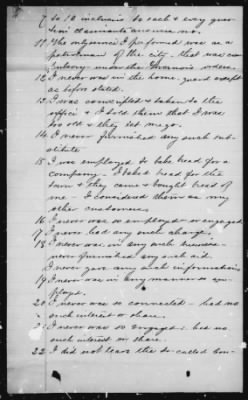 7 to 10 inclusive to each & every ques
tion claimants answers no.
11. The only service I performed was as a
patrolman of the city, that was com
pulsory under the Governors orders.
12. I never was in the home guard except
as before stated.
13. I was conscripted & taken to the
office & I told them that I was
too old & they let me go.
14. I never furnished any such sub-
stitute.
15. I was employed to bake bread for a
company - I baked bread for the
town & they came & bought bread of
me - I considered them as my
other customers.
16. I never was so employed or engaged
17. I never had any such charge.
18. I never was in any such business
never furnished any such aid.
I never gave any such information
19. I never was in any manner so em-
ployed.
20. I never was so connected - had no
such interest or share.
21. I never was so engaged had no
such interest or share.
22. I did not leave the so-called Con-